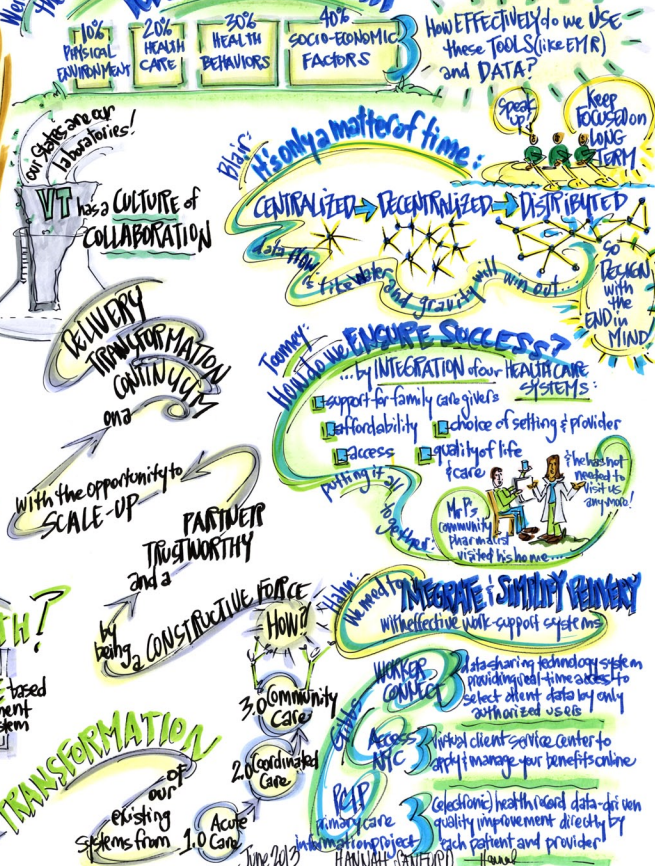 10%
PHYSICAL
ENVIRONMENT
20%
HEALTH
CARE
30%
HEALTH
BEHAVIORS
40%
SOCIO-ECONOMIC
FACTORS
How EFFECTIVELY do we USE
these TOOLS (like EMR)
and DATA?
Speak
up!
Keep
FOCUSED on
LONG
TERM
our States are our
laboratories!
VT has a CULTURE of
COLLABORATION
Blair:
It's only a matter of time:
CENTRALIZED → DECENTRALIZED → DISTRIBUTED
data flow is like water and gravity will win out...
SO
DESIGN
with
the
END in
MIND!
DELIVERY
TRANSFORMATION
CONTINUUM
on a
with the opportunity to
SCALE-UP
PARTNER
TRUSTWORTHY
and a
by
being a CONSTRUCTIVE FORCE
Toomey:
How do we ENSURE SUCCESS?
...by INTEGRATION of our HEALTHCARE
SYSTEMS:
support for family care givers
affordability
choice of setting & provider
access
quality of life
& care
putting it all together:
Mr P's
community
pharmacist
visited his home...
& he has not
needed to
visit us
anymore!
Hahn:
We need to INTEGRATE & SIMPLIFY DELIVERY
with effective work-support systems
HOW?
3.0 Community
Care
2.0 Coordinated
Care
1.0 Acute
Care
TH?
based
TRANSFORMATION
of
our
existing
systems from
Gibbs
WORKER
CONNECT
data sharing technology system
providing real-time access to
select client data by only
authorized users
Access
NYC
virtual client service center to
apply & manage your benefits online
PCIP
primary care
information project
(electronic) health record data-driven
quality improvement directly by
each patient and provider
June 2013
HANNAH SANFORD